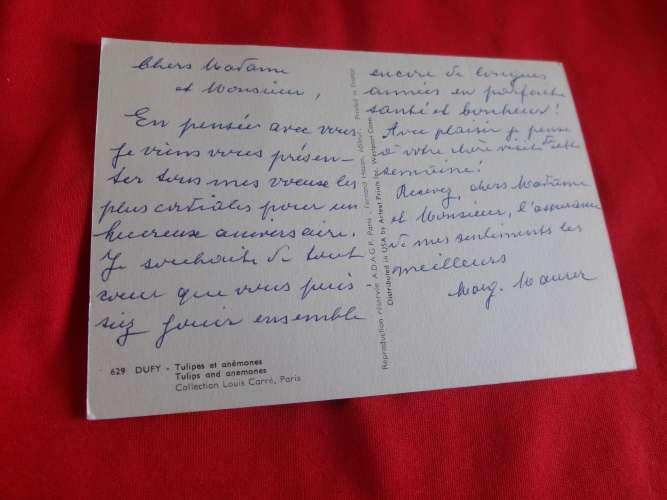 Chers Madame
et Monsieur,
En pensée avec vous
je viens vous présen-
ter tous mes voeux les
plus cordiales pour un
heureux aniversaire.
Je souhaite de tout
coeur que vous puis-
siez jouir ensemble
encore de longues
années en parfaite
santé et bonheur!
Avec plaisir je pense
à votre chère visite cette
semaine!
Recevez, chers Madame
et Monsieur, l'assurance
de mes sentiments les
meilleurs
Marg. Maurer
Reproduction réservée A.D.A.G.P. Paris - Fernand Hazan, Editeur. Printed in France
Distributed in USA by Artext Prints Inc. Westport Conn.
629 DUFY - Tulipes et anémones
Tulips and anemones
Collection Louis Carré, Paris